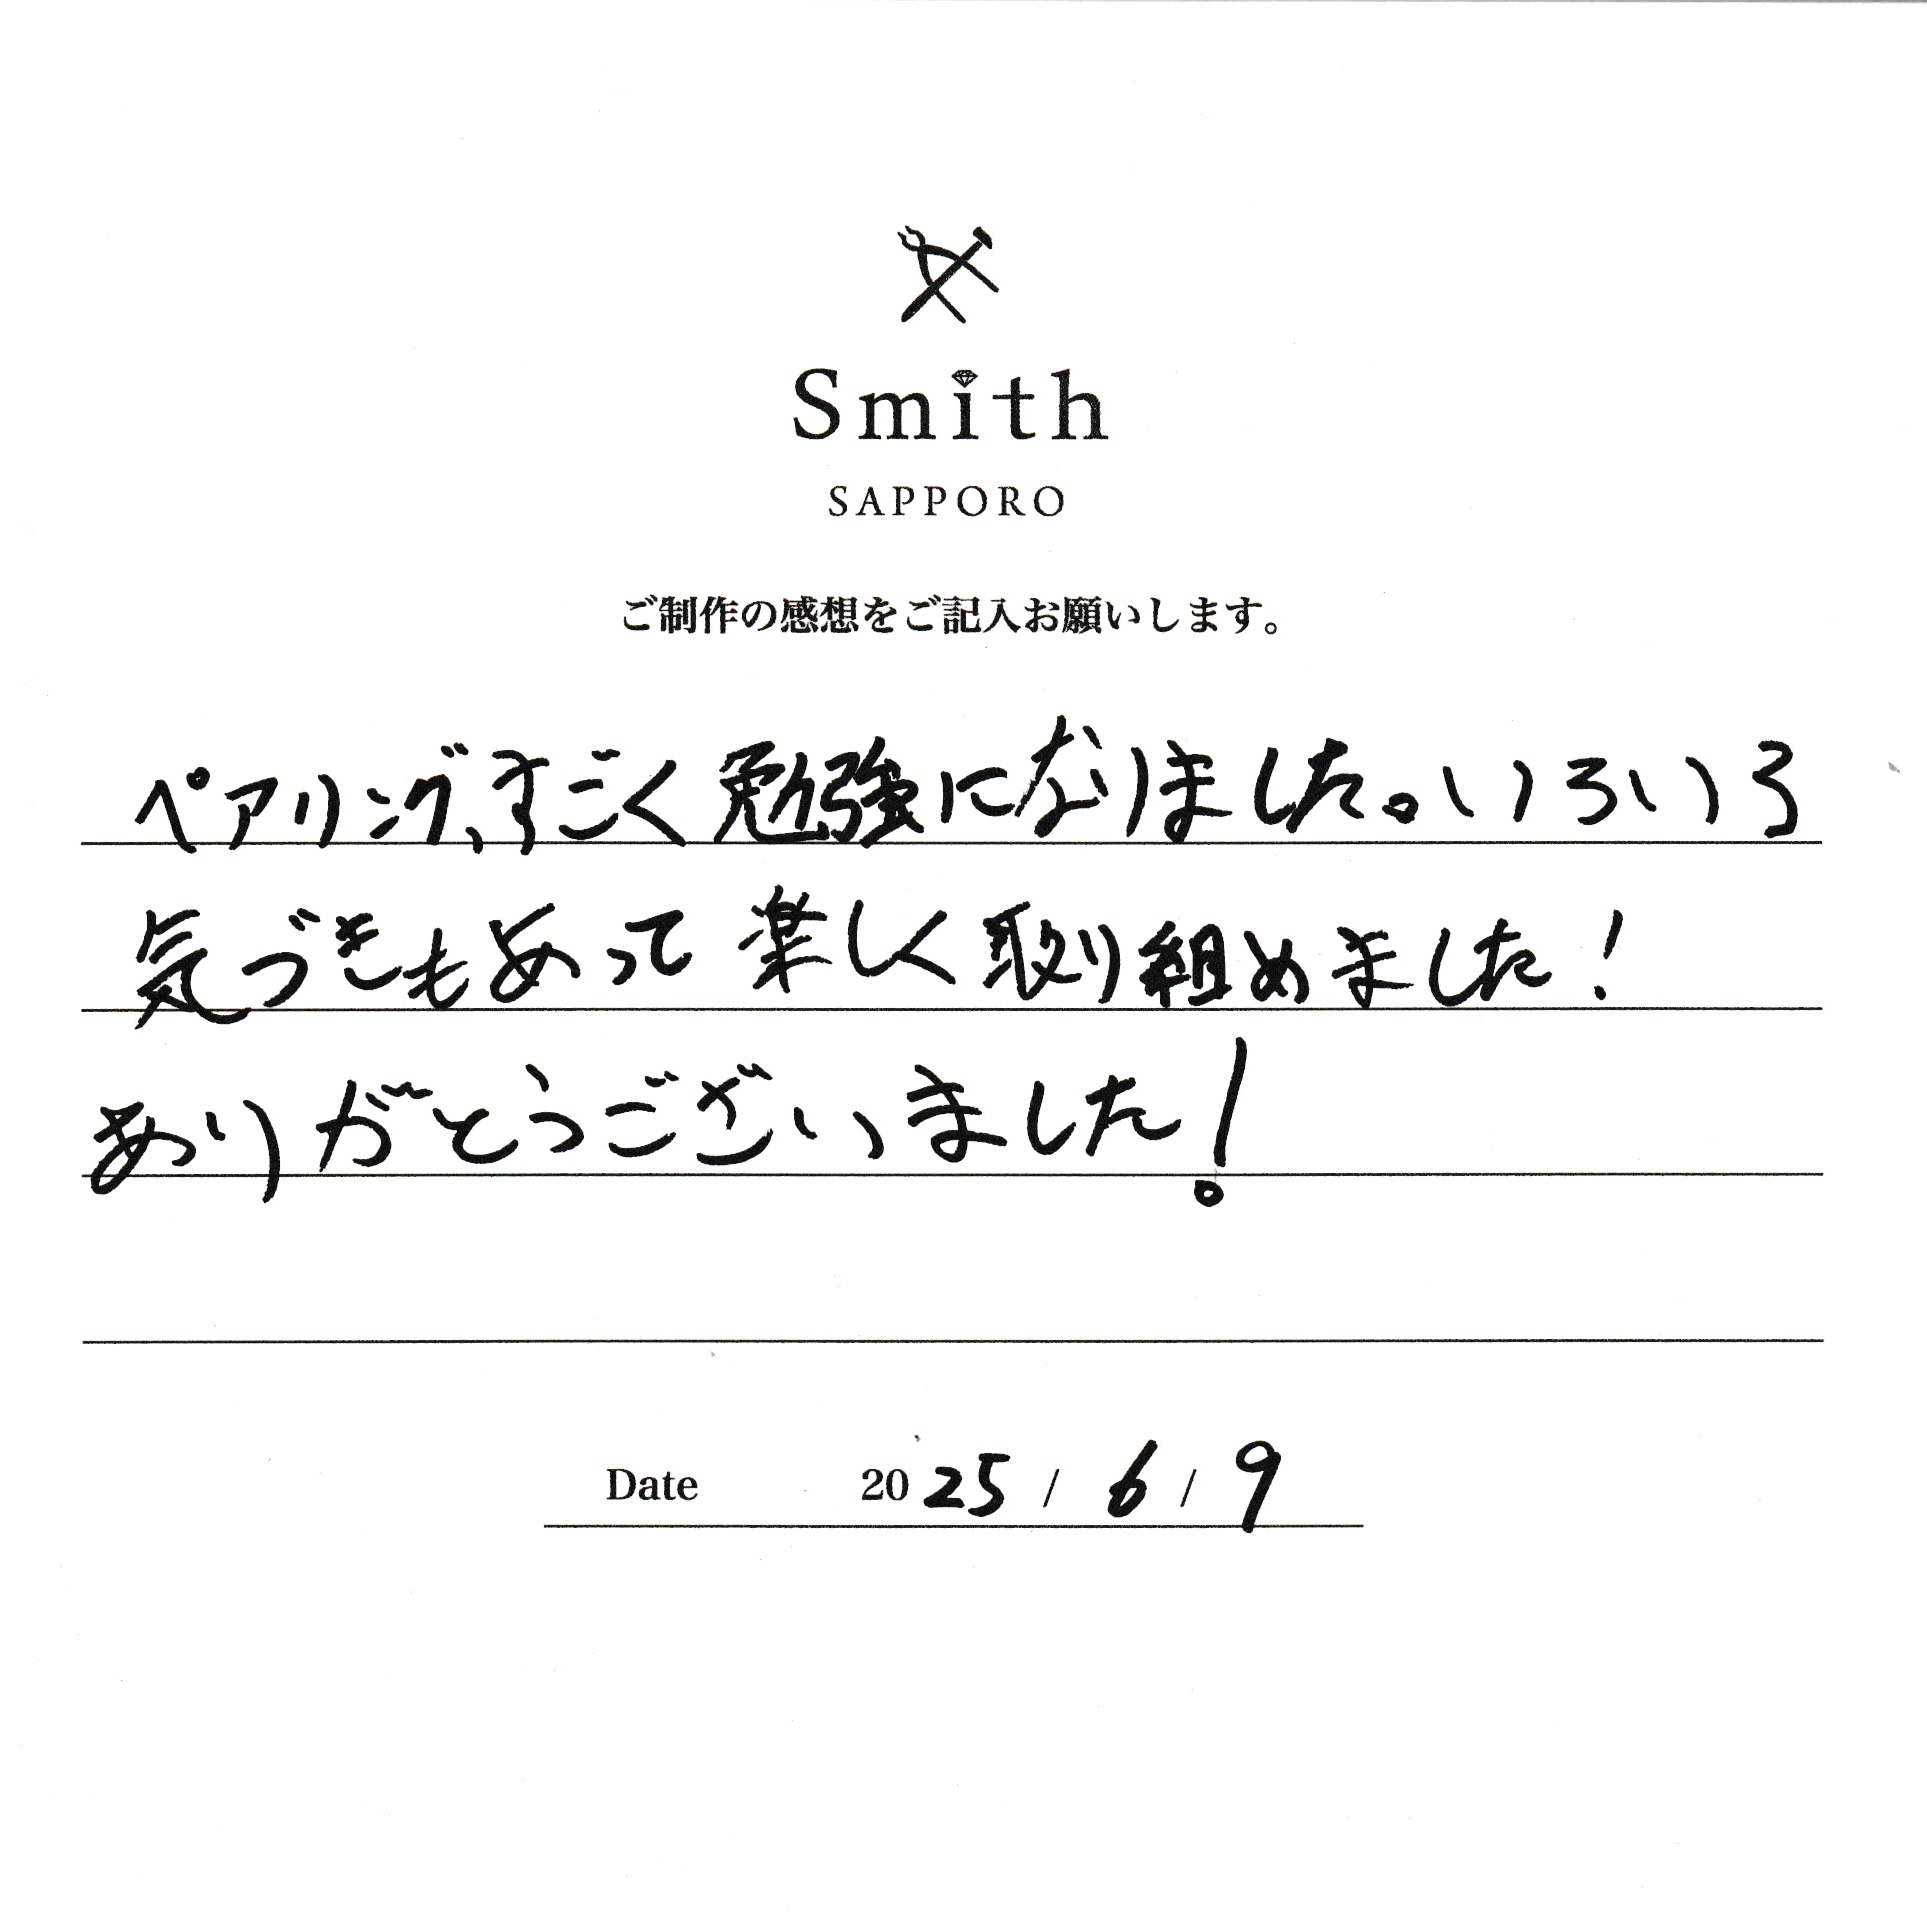 Smith
SAPPORO
ご制作の感想をご記入お願いします。
ペアリング、すごく勉強になりました。いろいろ
気づきもあって楽しく取り組めました!
ありがとうございました!
Date 2025 / 6 / 9